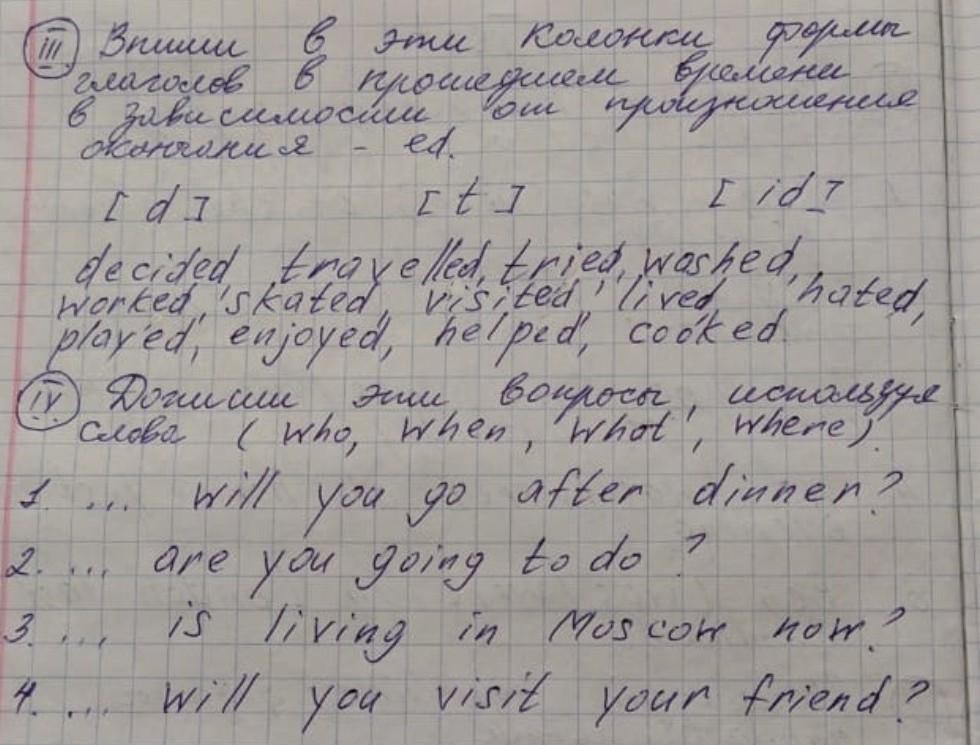 III Впиши в эти колонки формы
глаголов в прошедшем времени
в зависимости от произношения
окончания - ed.
[d] [t] [id]
decided, travelled, tried, washed,
worked, skated, visited, lived, hated,
played, enjoyed, helped, cooked.
IV Допиши эти вопросы, используя
слова (who, when, what, where).
1. ... will you go after dinner?
2. ... are you going to do?
3. ... is living in Moscow now?
4. ... will you visit your friend?